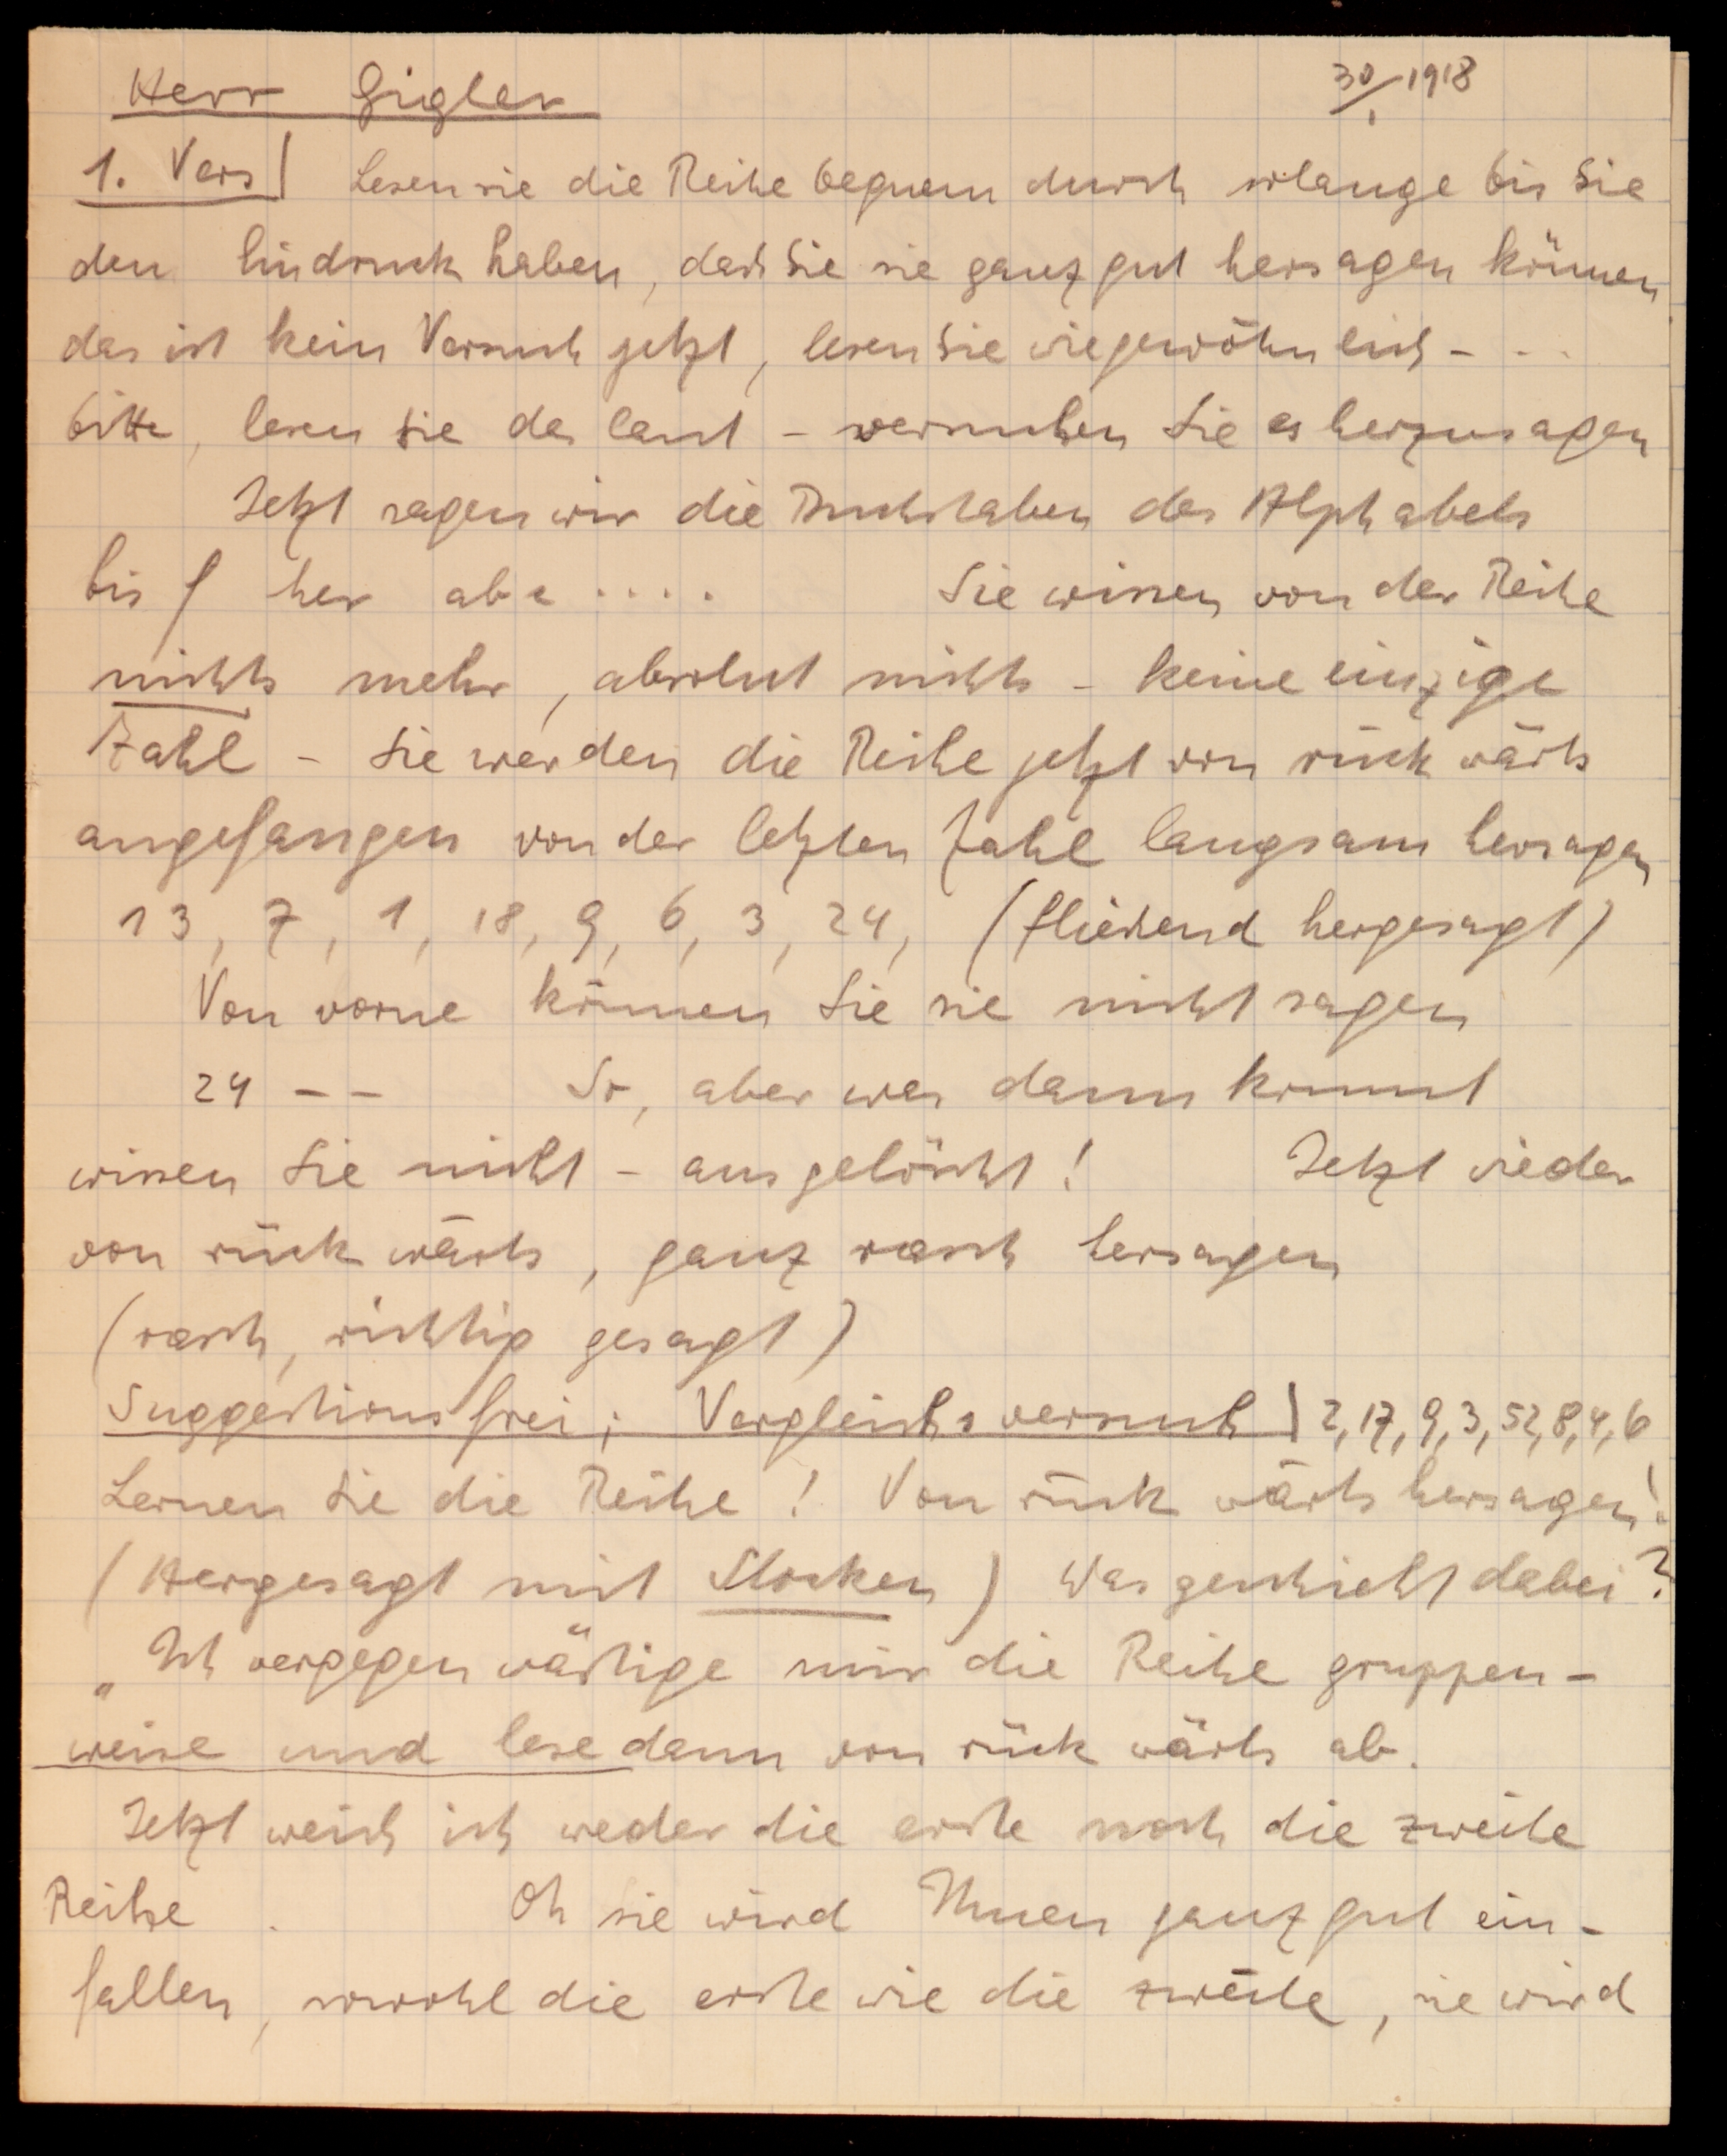 Herr Gigler 30/1 1918
1. Vers | Lesen sie die Reihe bequem durch solange bis Sie
den Eindruck haben, dass Sie sie ganz gut hersagen können
das ist kein Versuch jetzt, lesen Sie wie gewöhnlich - - -
bitte, lesen Sie das laut - versuchen Sie es herzusagen
Jetzt sagen wir die Buchstaben des Alphabets
bis f her abc .... Sie wissen von der Reihe
nichts mehr, absolut nichts - keine einzige
Zahl - Sie werden die Reihe jetzt von rückwärts
angefangen von der letzten Zahl langsam hersagen
13, 7, 1, 18, 9, 6, 3, 24, (fließend hergesagt)
Von vorne können Sie sie nicht sagen
24 - - So, aber was dann kommt
wissen Sie nicht - ausgelöscht! Jetzt wieder
von rückwärts, ganz rasch hersagen
(rasch, richtig gesagt)
Suggestionsfrei; Vergleichsversuch | 2, 17, 9, 3, 52, 8, 4, 6
Lernen Sie die Reihe! Von rückwärts hersagen!
(Hergesagt mit Stocken) Was geschieht dabei?
„Ich vergegenwärtige mir die Reihe gruppen-
weise und lese dann von rückwärts ab.
Jetzt weiß ich weder die erste noch die zweite
Reihe. Oh sie wird Ihnen ganz gut ein-
fallen, sowohl die erste wie die zweite, sie wird